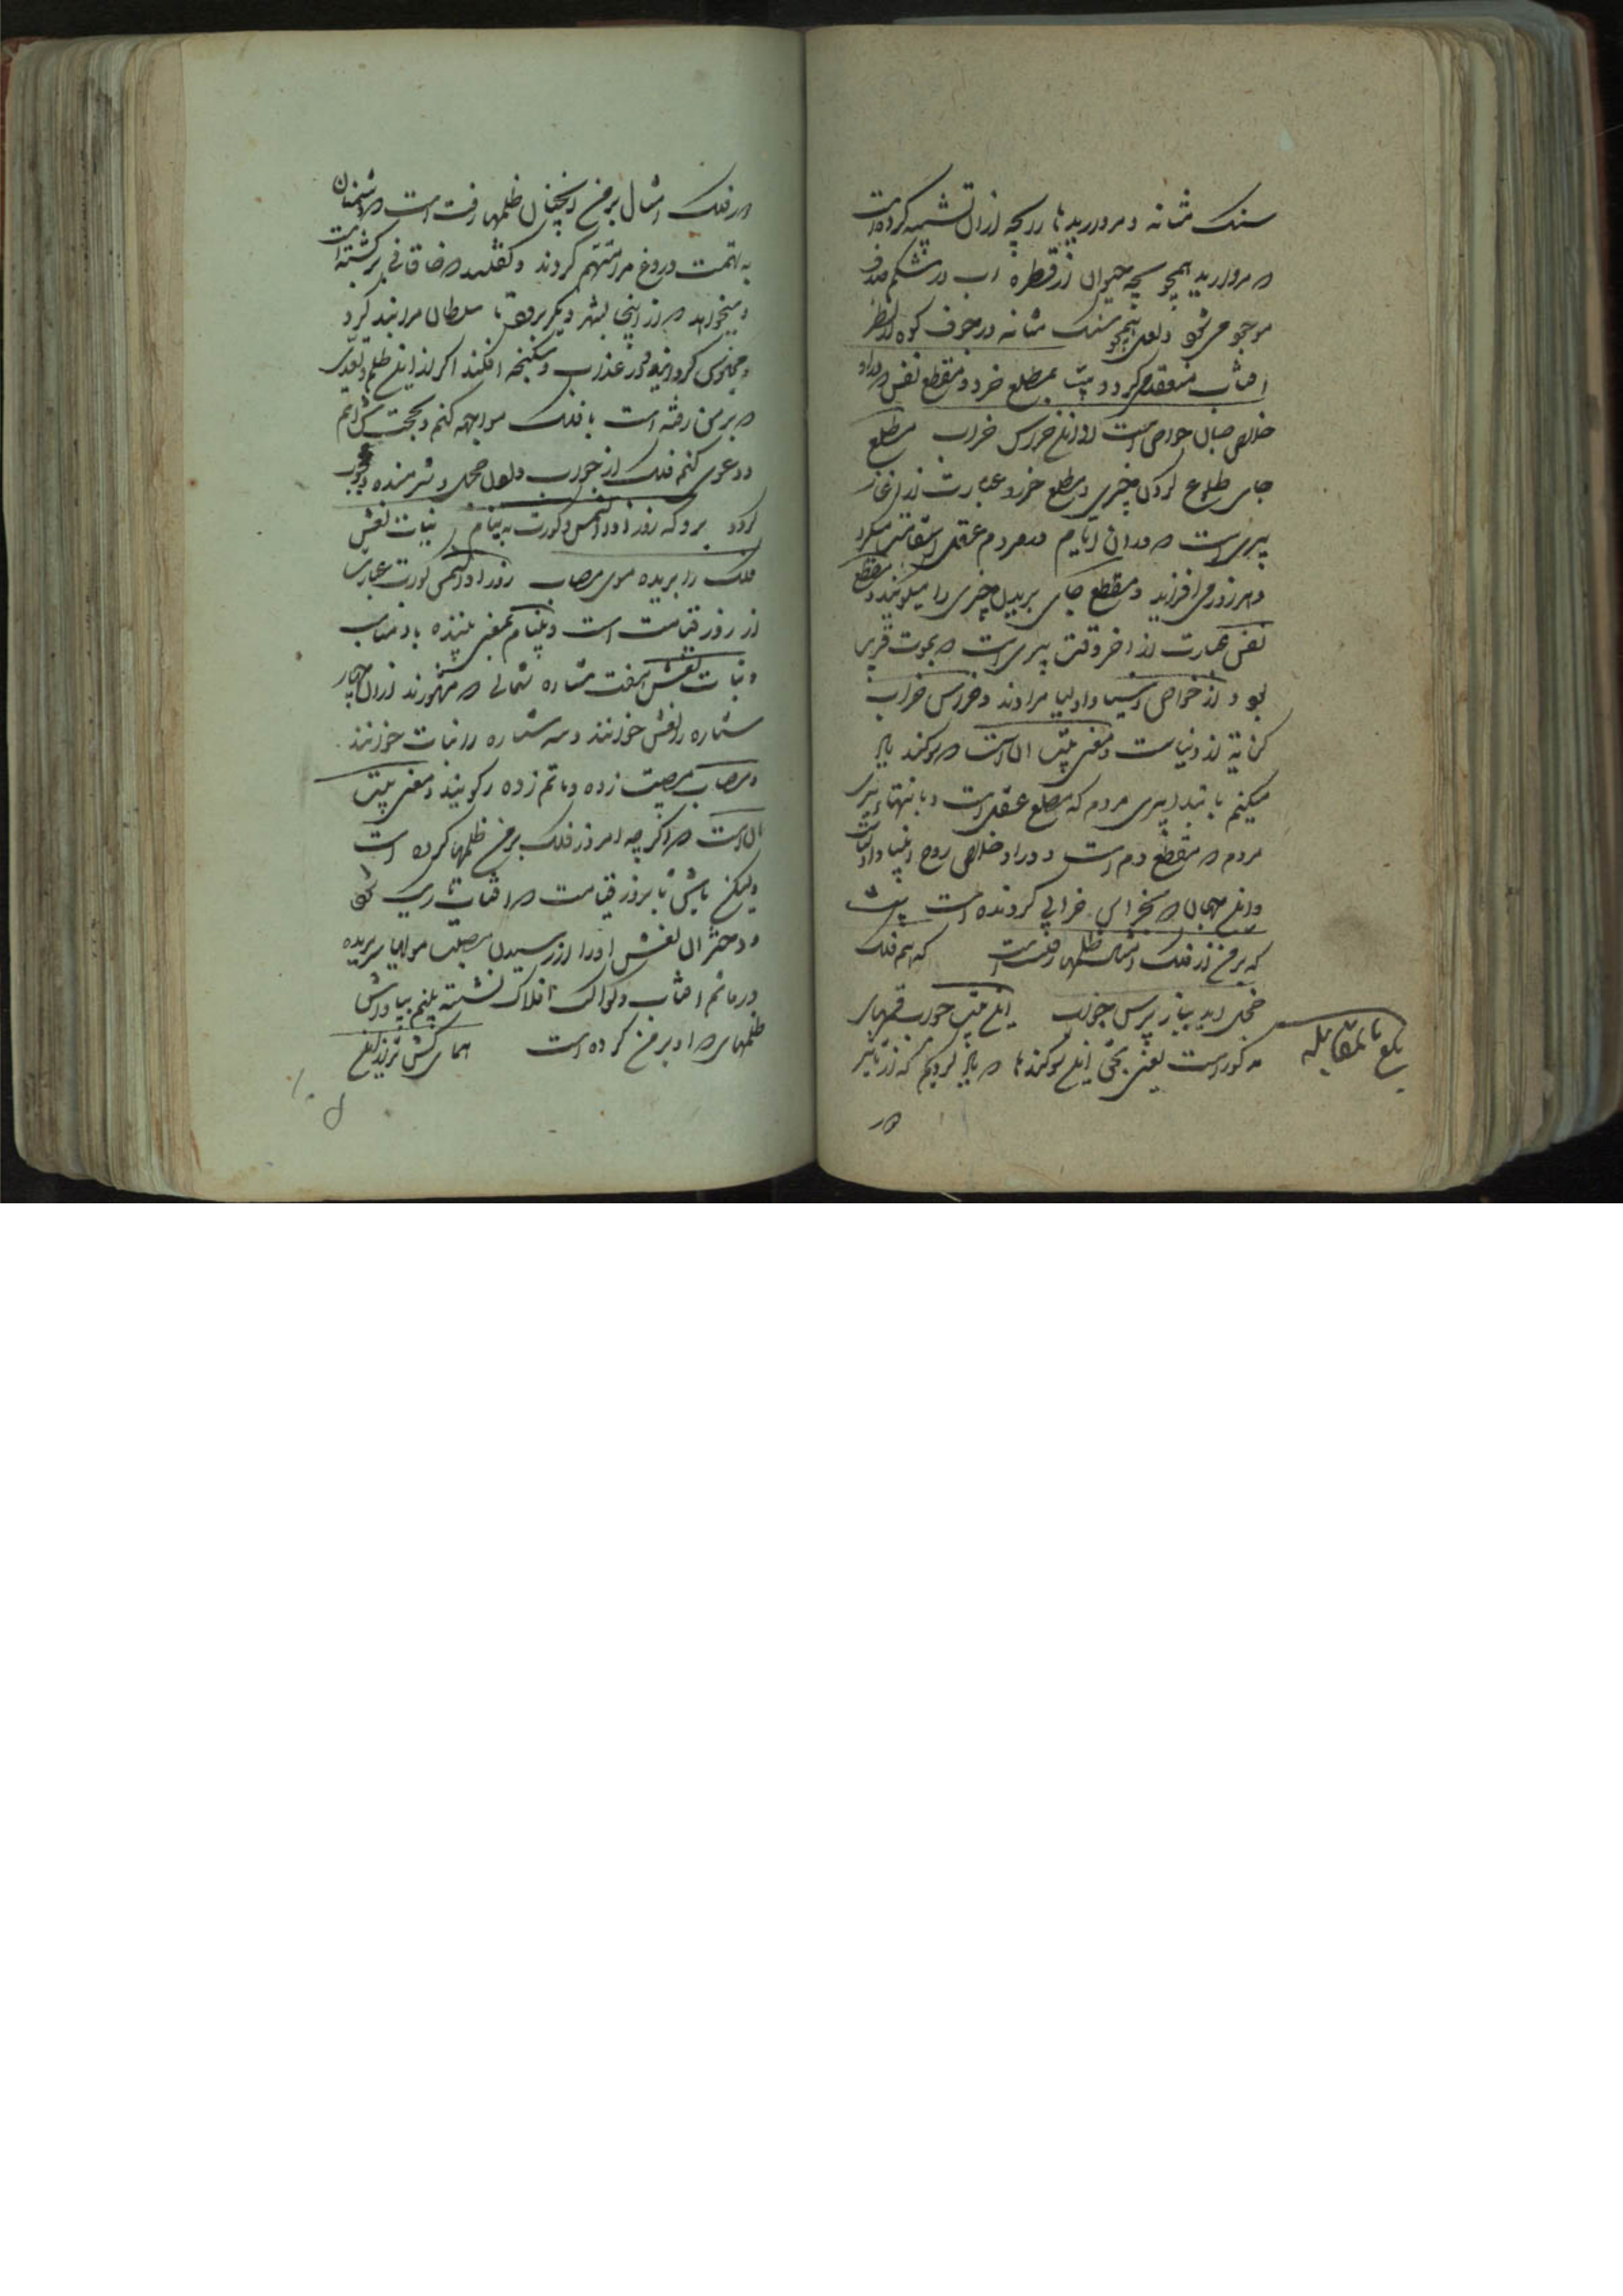 سنک مثانه و مروارید تا را بچه از ان تشبیه کرده است
که مروارید همچو بچه حیوان از قطره اب در شکم صدف
موجود می شود و لعل همچو سنک مثانه در جوف کوه از نظر
افتاب منعقد میکردد بیت بمطلع خرد و مقطع نفس که درو
خلاص جان خواص است ازین خراس خراب مطلع
جای طلوع کردن چیزی و مطلع خرد عبارت از اغاز
پیری است که در ان ایام مردم عقل استقامت میکرد
و هر روز می افزاید و مقطع جای بریدن چیزی را میکویند و مقطع
نفس عبارت از اخر وقت پیری است که بموت قریب
بود و از خواص انبیا و اولیا مرادند و خراس خراب
کنایة از دنیاست و معنی بیت ان است که سوکند یاد
میکنم بابتدا پیری مردم که مطلع عقل است و بانتهاء پیری
مردم که مقطع دم است و در او خلاص روح انبیا و اولیاست
واین جهان که بخراس خرابی کردنده است بیت
که بر من از فلک امسال ظلمها رفتست که هم فلک
خجل اید بباز پرس جواب این بیت جواب قسمهای
مذکور است یعنی بحق این سوکندها که یاد کردیم که از تاثیر
بلغ بالمقابله
در فلک امسال بر من انچنان ظلمها رفته است که دشمنان
به تهمت دروغ مرا متهم کردند و کفتند که خاقانی برکشته است
و میخواهد که از اینجا بشهر دیکر برود تا سلطان مرا بند کرد
و محبوس کردانید و در عذاب و شکنجه افکند اکر از این ظلم و تعدی
که بر من رفته است با فلک مواجهه کنم و بحجت پیش ایم
و دعوی کنم فلک از جواب و سوال خجل و شرمنده
کردد برو که روز اذا الشمس کورت به پینام بنات نعش
فلک را بریده موی مصاب روز اذا الشمس کورت عبارت
از روز قیامت است و بینام بمعنی بیننده باد مناب
و بنات نعش هفت ستاره شمالی که مشهورند از ان چهار
ستاره را نعش خوانند و سه ستاره را بنات خوانند
و مصاب مصیبت زده و ماتم زده را کویند و معنی بیت
ان است که اکرچه امروز فلک بر من ظلمها کرده است
ولیکن باش تا بروز قیامت که افتاب تاریک شود
و دختران نعش او را از رسیدن مصیبت مویها بریده
در ماتم افتاب و کواکب افلاک نشسته بینم بپاداش
ظلمهای که او بر من کرده است همای کش